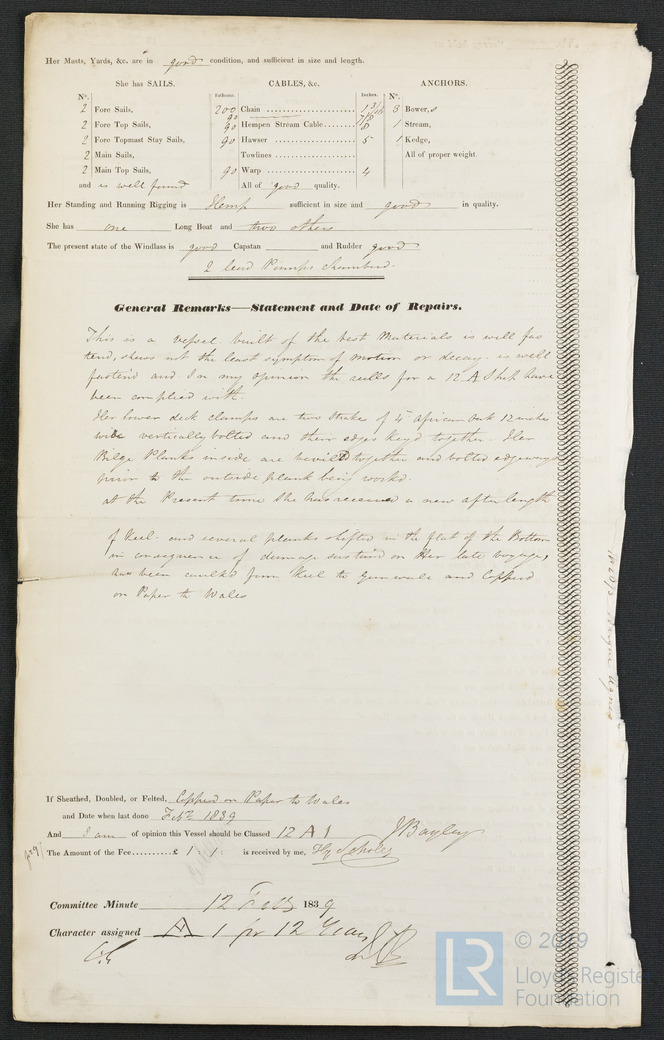 Her Masts, Yards, &c. are in good condition, and sufficient in size and length.
She has SAILS. CABLES, &c. ANCHORS.
No. Fathoms. Inches. No.
2 Fore Sails, 200 Chain 1 3/16 3 Bower,s
2 Fore Top Sails, 90 90 Hempen Stream Cable 7/8 8 1 Stream,
2 Fore Topmast Stay Sails, 90 Hawser 5 1 Kedge,
2 Main Sails, Towlines All of proper weight.
2 Main Top Sails, 90 Warp 4
and is well found All of good quality.
Her Standing and Running Rigging is Hemp sufficient in size and good in quality.
She has one Long Boat and two others
The present state of the Windlass is good Capstan and Rudder good
2 lead Pumps Chambered.
General Remarks—Statement and Date of Repairs.
This is a vessel built of the best Materials is well fas
tend, shews not the least symptom of motion or decay. is well
fastend and In my opinion the rules for a 12 A Ship have
been complied with.
Her lower deck clamps are two Strakes of 4 African Oak 12 inches
wide vertically bolted and their edges Keyd together. Her
Bilge Planks inside are together and bolted edgeways
prior to the outside plank being workd.
at the Present time She has received a new after length
of Keel. and several planks shifted in the flat of the Bottom
in consequence of damage sustaind on Her late voyage,
has been caulk'd from Keel to gunwale and Copperd
on Paper to Wales
If Sheathed, Doubled, or Felted, Copperd on Paper to Wales
and Date when last done Feby 1839
And I am of opinion this Vessel should be Classed 12 A 1 J Bayley
The Amount of the Fee £ 1 : 1 : is received by me,
Committee Minute 12 Feby 1839
Character assigned A 1 for 12 Years
LR
© 2019
Lloyd's Register
Foundation